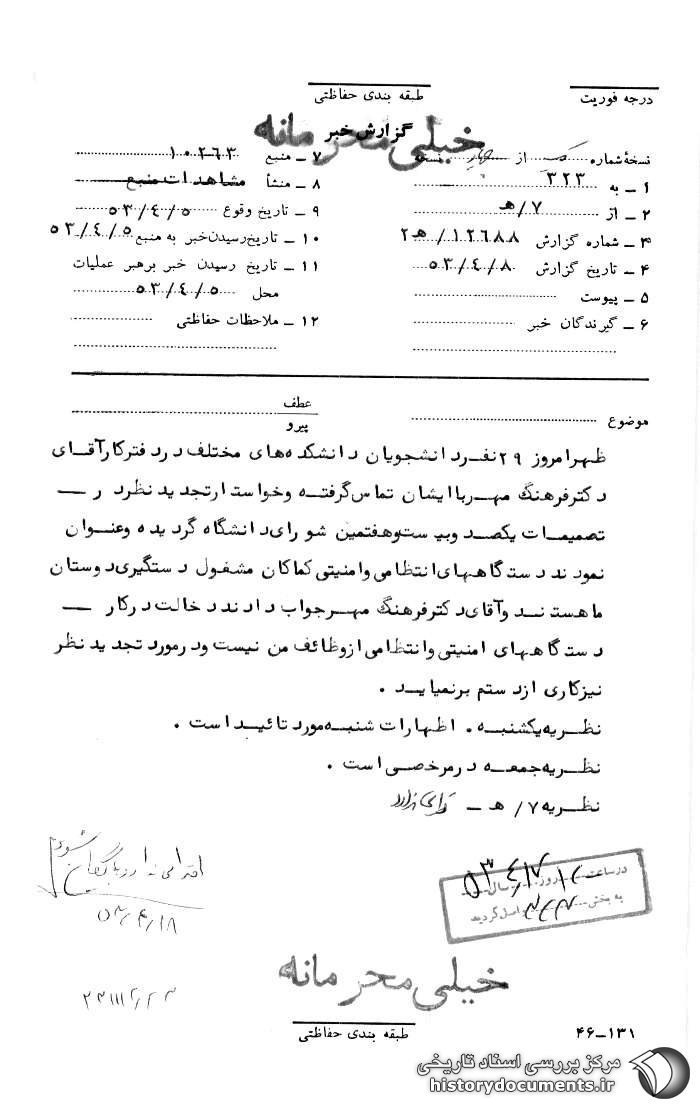 درجه فوریت
طبقه بندی حفاظتی
خیلی محرمانه
گزارش خبر
نسخهٔ شماره از چهار نسخه
۱ – به ۳۲۳
۲ – از ۷/هـ
۳ – شماره گزارش ۱۲۶۸۸/هـ۲
۴ – تاریخ گزارش ۵۳/۴/۸
۵ – پیوست
۶ – گیرندگان خبر
۷ – منبع ۱۰۲۶۳
۸ – منشأ مشاهدات منبع
۹ – تاریخ وقوع ۵۳/۴/۵
۱۰ – تاریخ رسیدن خبر به منبع ۵۳/۴/۵
۱۱ – تاریخ رسیدن خبر برهبر عملیات
محل ۵۳/۴/۵
۱۲ – ملاحظات حفاظتی
موضوع
عطف
پیرو
ظهر امروز ۲۹ نفر دانشجویان دانشکده‌های مختلف در دفتر کار آقای
دکتر فرهنگ مهر با ایشان تماس گرفته و خواستار تجدید نظر در
تصمیمات یکصد و بیست و هفتمین شورای دانشگاه گردیده و عنوان
نمودند دستگاههای انتظامی و امنیتی کماکان مشغول دستگیری دوستان
ما هستند و آقای دکتر فرهنگ مهر جواب دادند دخالت در کار
دستگاههای امنیتی و انتظامی از وظائف من نیست و در مورد تجدید نظر
نیز کاری از دستم برنمیاید .
نظریه یکشنبه . اظهارات شنبه مورد تائید است .
نظریه جمعه در مرخصی است .
نظریه ۷/هـ –
اقدامی ندارد بایگانی شود
۵۳/۴/۱۸
در ساعت روز سال ۵۳/۴/۱۷
به بخش ۳۲۳ واصل گردید
خیلی محرمانه
طبقه بندی حفاظتی
۴۶–۱۳۱
مرکز بررسی اسناد تاریخی
historydocuments.ir